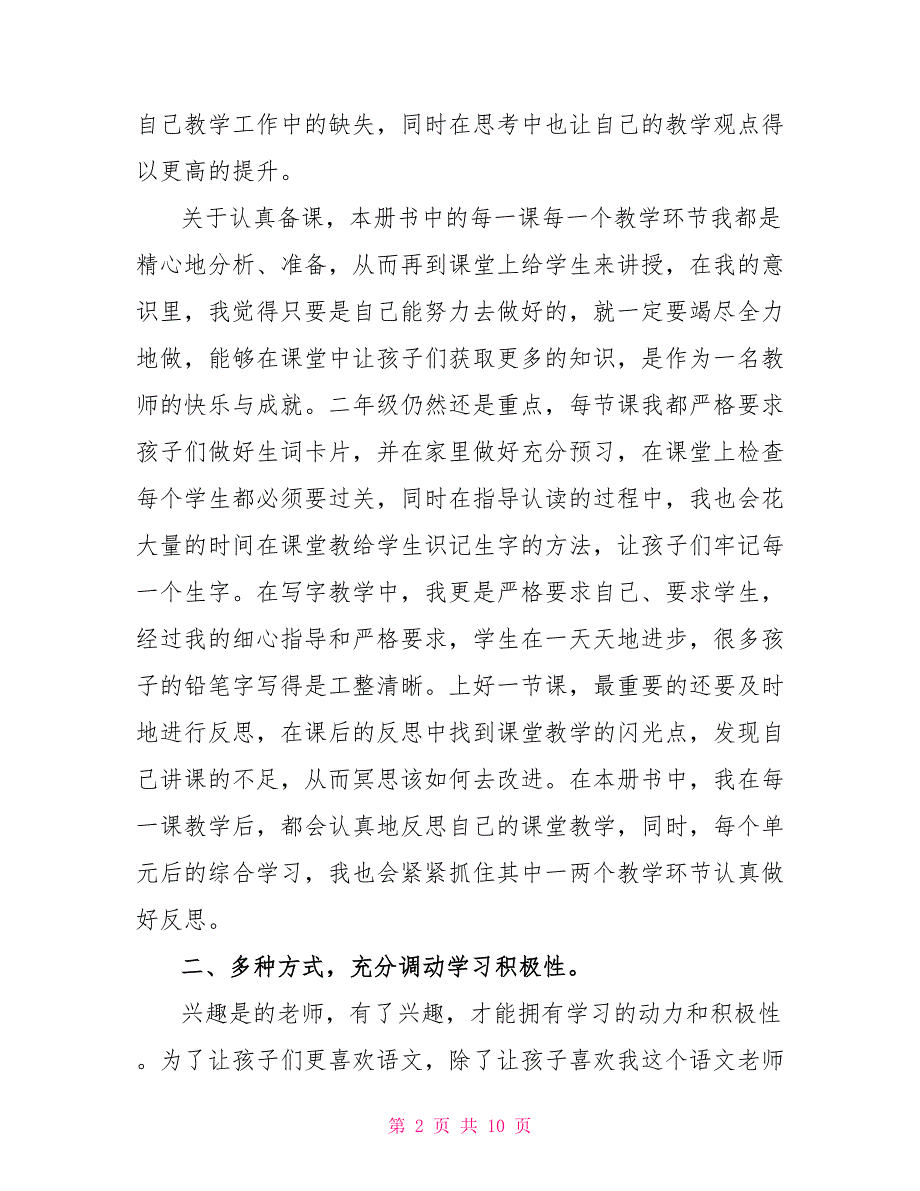 自己教学工作中的缺失，同时在思考中也让自己的教学观点得
以更高的提升。
关于认真备课，本册书中的每一课每一个教学环节我都是
精心地分析、准备，从而再到课堂上给学生来讲授，在我的意
识里，我觉得只要是自己能努力去做好的，就一定要竭尽全力
地做，能够在课堂中让孩子们获取更多的知识，是作为一名教
师的快乐与成就。二年级仍然还是重点，每节课我都严格要求
孩子们做好生词卡片，并在家里做好充分预习，在课堂上检查
每个学生都必须要过关，同时在指导认读的过程中，我也会花
大量的时间在课堂教给学生识记生字的方法，让孩子们牢记每
一个生字。在写字教学中，我更是严格要求自己、要求学生，
经过我的细心指导和严格要求，学生在一天天地进步，很多孩
子的铅笔字写得是工整清晰。上好一节课，最重要的还要及时
地进行反思，在课后的反思中找到课堂教学的闪光点，发现自
己讲课的不足，从而冥思该如何去改进。在本册书中，我在每
一课教学后，都会认真地反思自己的课堂教学，同时，每个单
元后的综合学习，我也会紧紧抓住其中一两个教学环节认真做
好反思。
二、多种方式，充分调动学习积极性。
兴趣是的老师，有了兴趣，才能拥有学习的动力和积极性
。为了让孩子们更喜欢语文，除了让孩子喜欢我这个语文老师
第 2 页 共 10 页